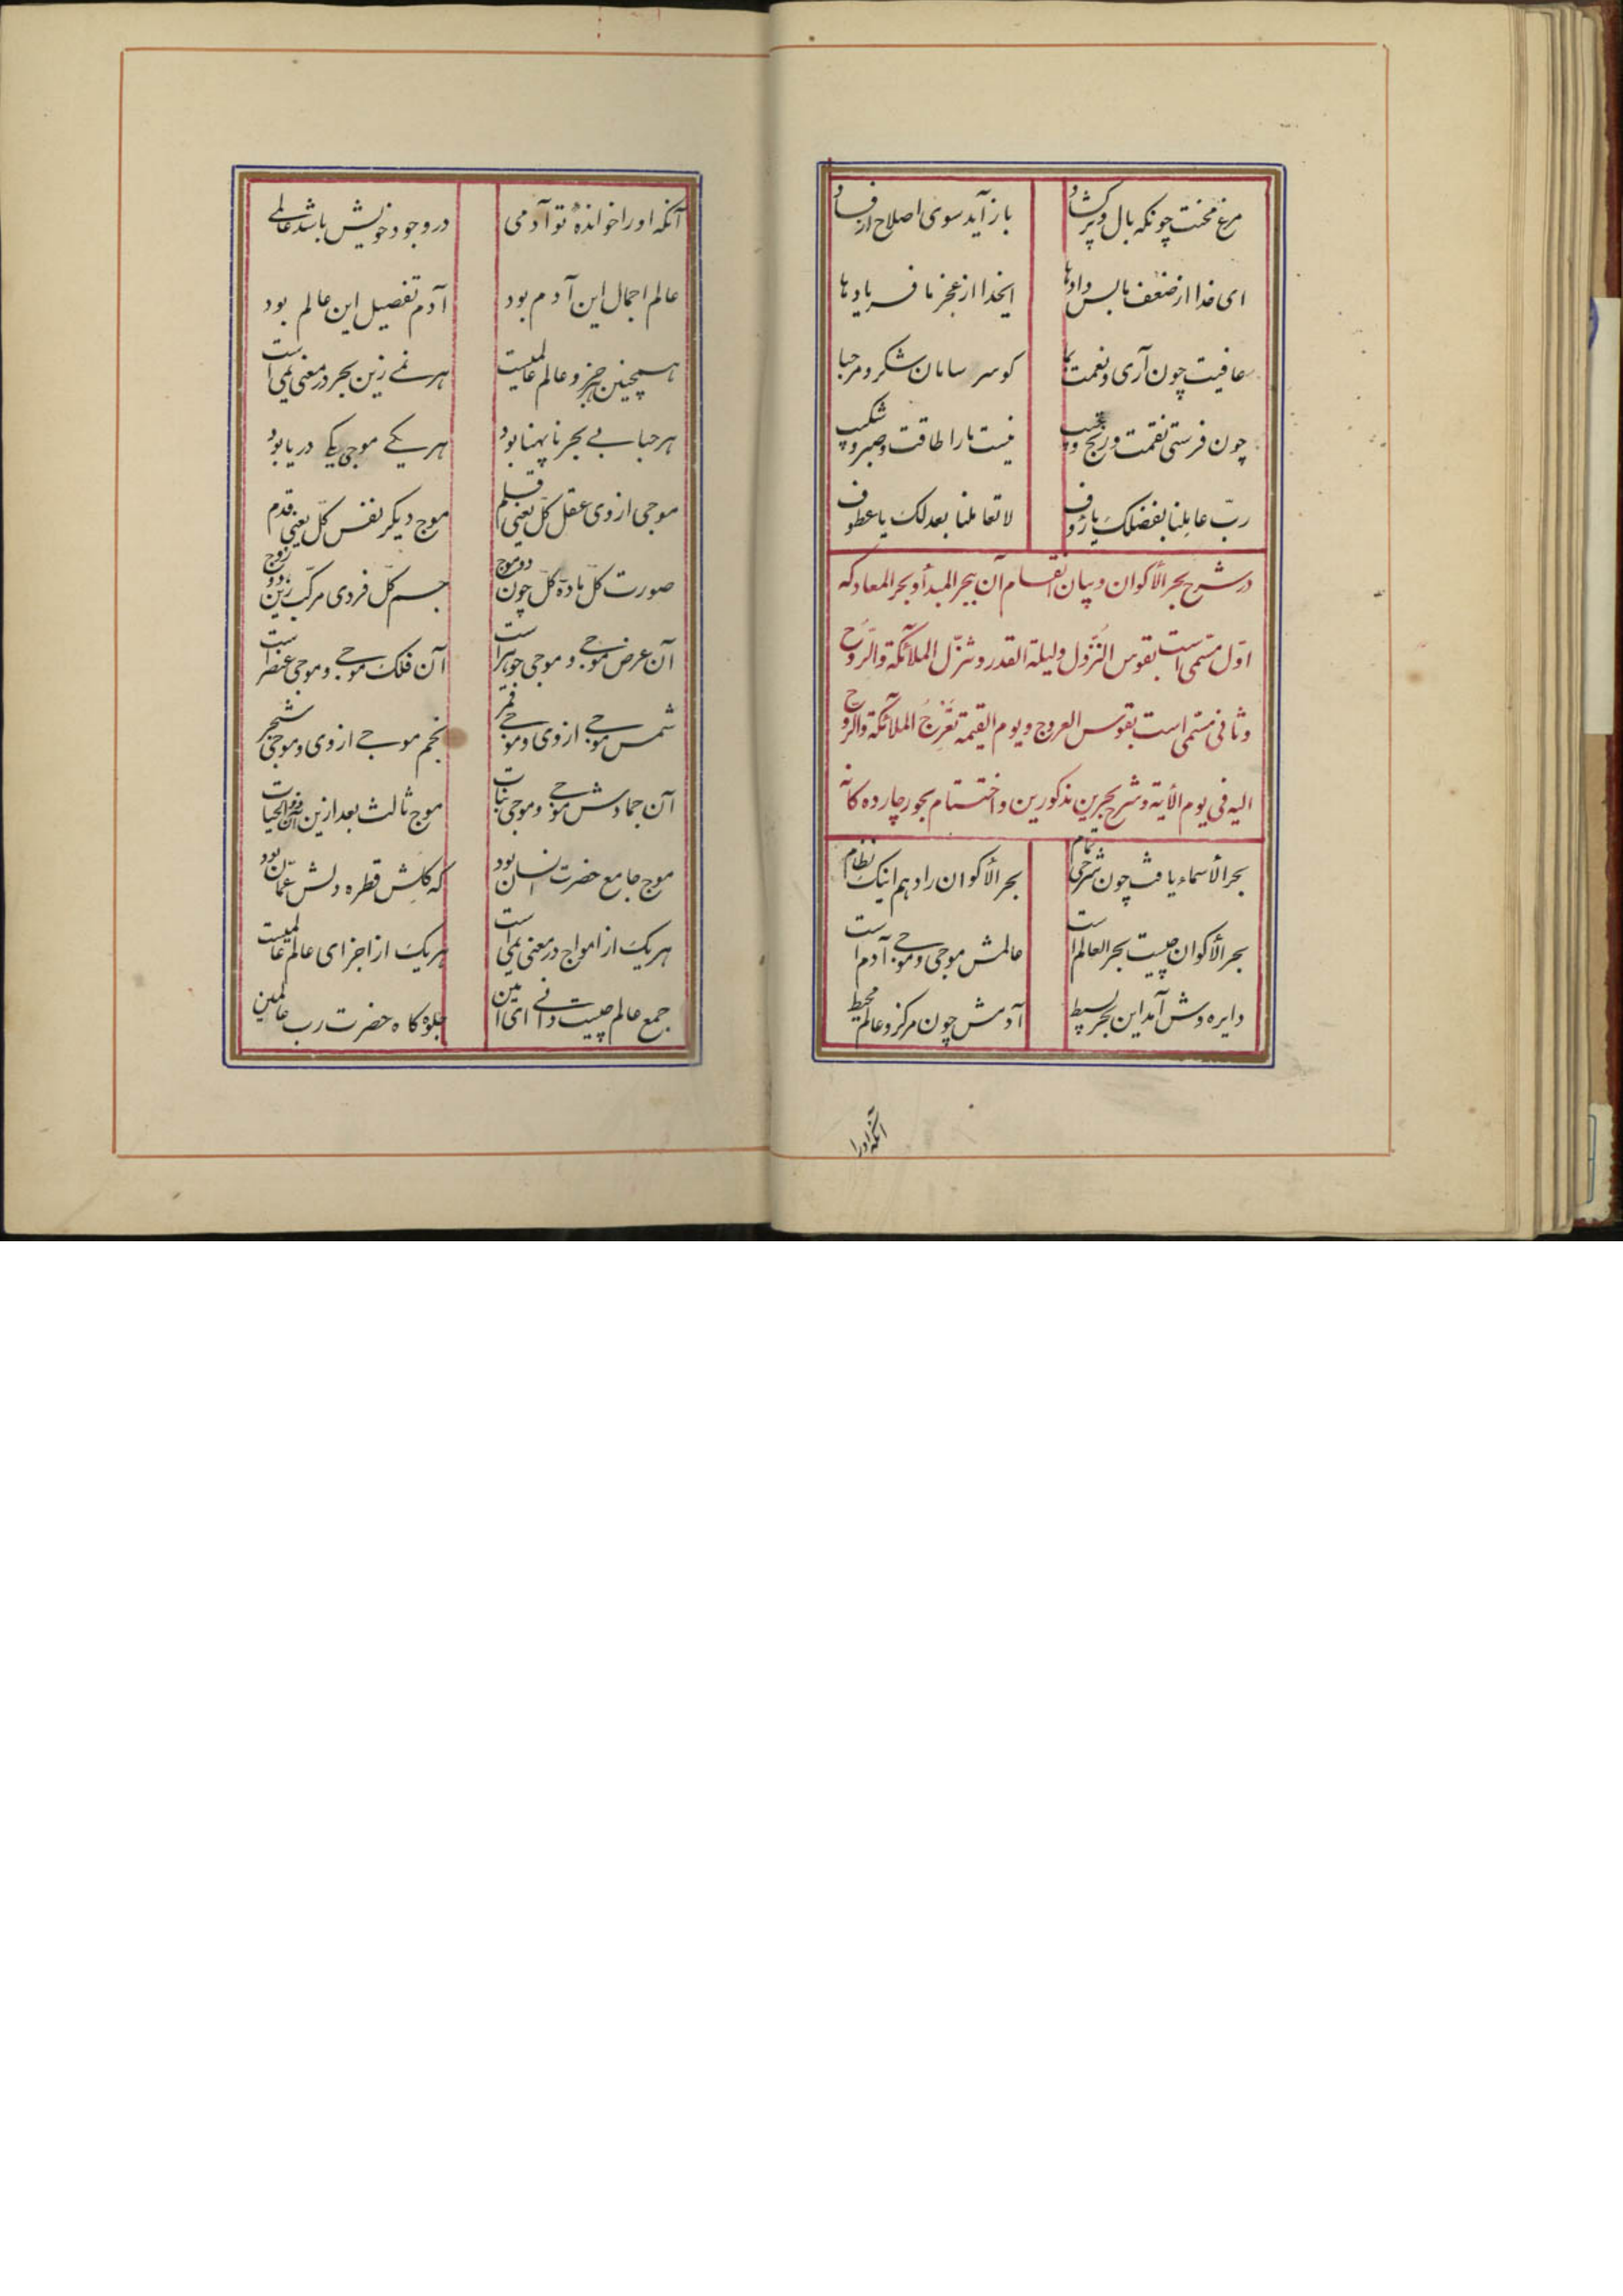 مرغ محنت چونکه بال و پر گشاد باز آید سوی اصلاح از فساد
ای خدا از ضعف ما بس دادها ایخدا از عجز ما فریادها
عافیت چون آری و نعمت بما کو سر سامان شکر و مرحبا
چون فرستی نقمت و رنج و نیست ما را طاقت و صبر و شکیب
ربّ عاملنا بفضلک یا رؤف لا تعاملنا بعدلک یا عطوف
در شرح بحر الأکوان و بیان انقسام آن ببحر المبدأ و بحر المعاد که
اوّل مسمّی است بقوس النّزول و لیلة القدر و تنزّل الملائکة والرّوح
و ثانی مسمّی است بقوس العروج و یوم القیمة تَعْرُجُ الملائکة والروح
الیه فی یوم الأیة و شرح بحرین مذکورین و اختتام بحور چارده کانه
بحر الأسماء یافت چون شرحی تمام بحر الأکوان را دهم اینک نظام
بحر الأکوان چیست بحر العالم است عالمش موجی و موجی آدم است
دایره وش آمد این بحر بسیط آدمش چون مرکز و عالم محیط
آنکه او را
آنکه او را خواندهٔ تو آدمی در وجود خویش باشد عالمی
عالم اجمال این آدم بود آدم تفصیل این عالم بود
همچنین هر جزو عالم عالمیست هر نمی زین بحر در معنی یمی است
هر حبابی بحر ناپهنا بود هر یکی موجی یکی دریا بود
موجی از وی عقل کلّ یعنی قلم موج دیگر نفس کلّ یعنی قدم
صورت کلّ مادّه کلّ چون دو موج جسم کلّ فردی مرکّب زین دو زوج
آن عرض موجی و موجی جوهر است آن فلک موجی و موجی عنصر است
شمس موجی از وی و موجی قمر نجم موجی از وی و موجی شجر
آن جمادش موجی و موجی نبات موج ثالث بعد ازین آن ذو الحیات
موج جامع حضرت انسان بود که کلش قطره دلش عمّان بود
هر یک از امواج در معنی یمی است هر یک از اجزای عالم عالمیست
جمع عالم چیست دانی ای امین جلوه کاه حضرت رب عالمین